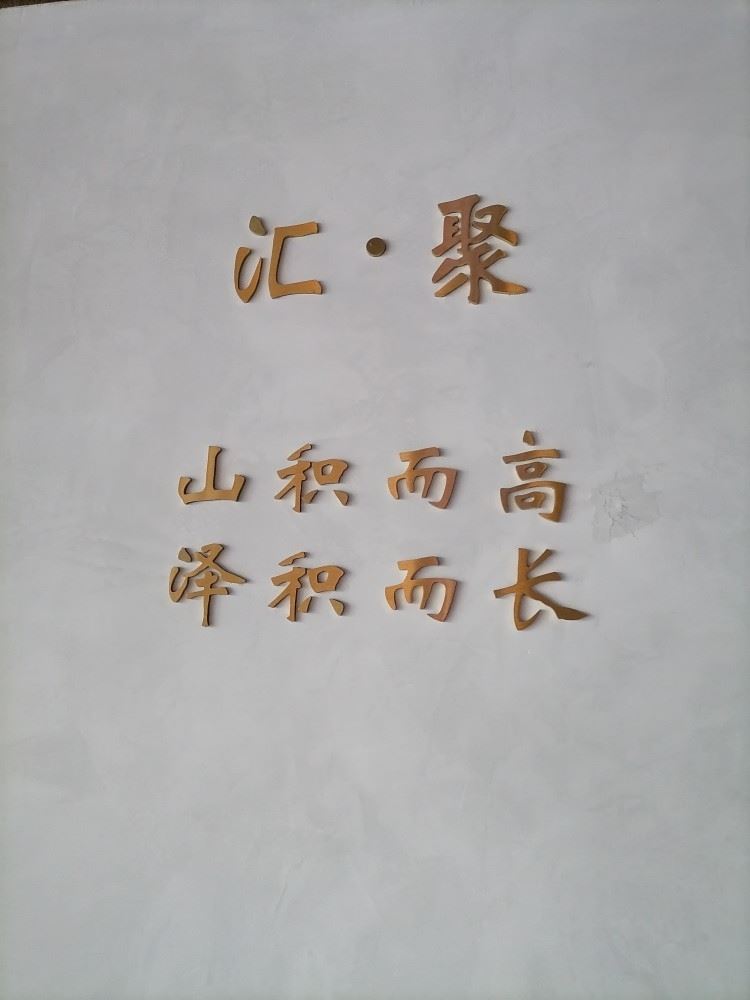 汇·聚
山积而高
泽积而长